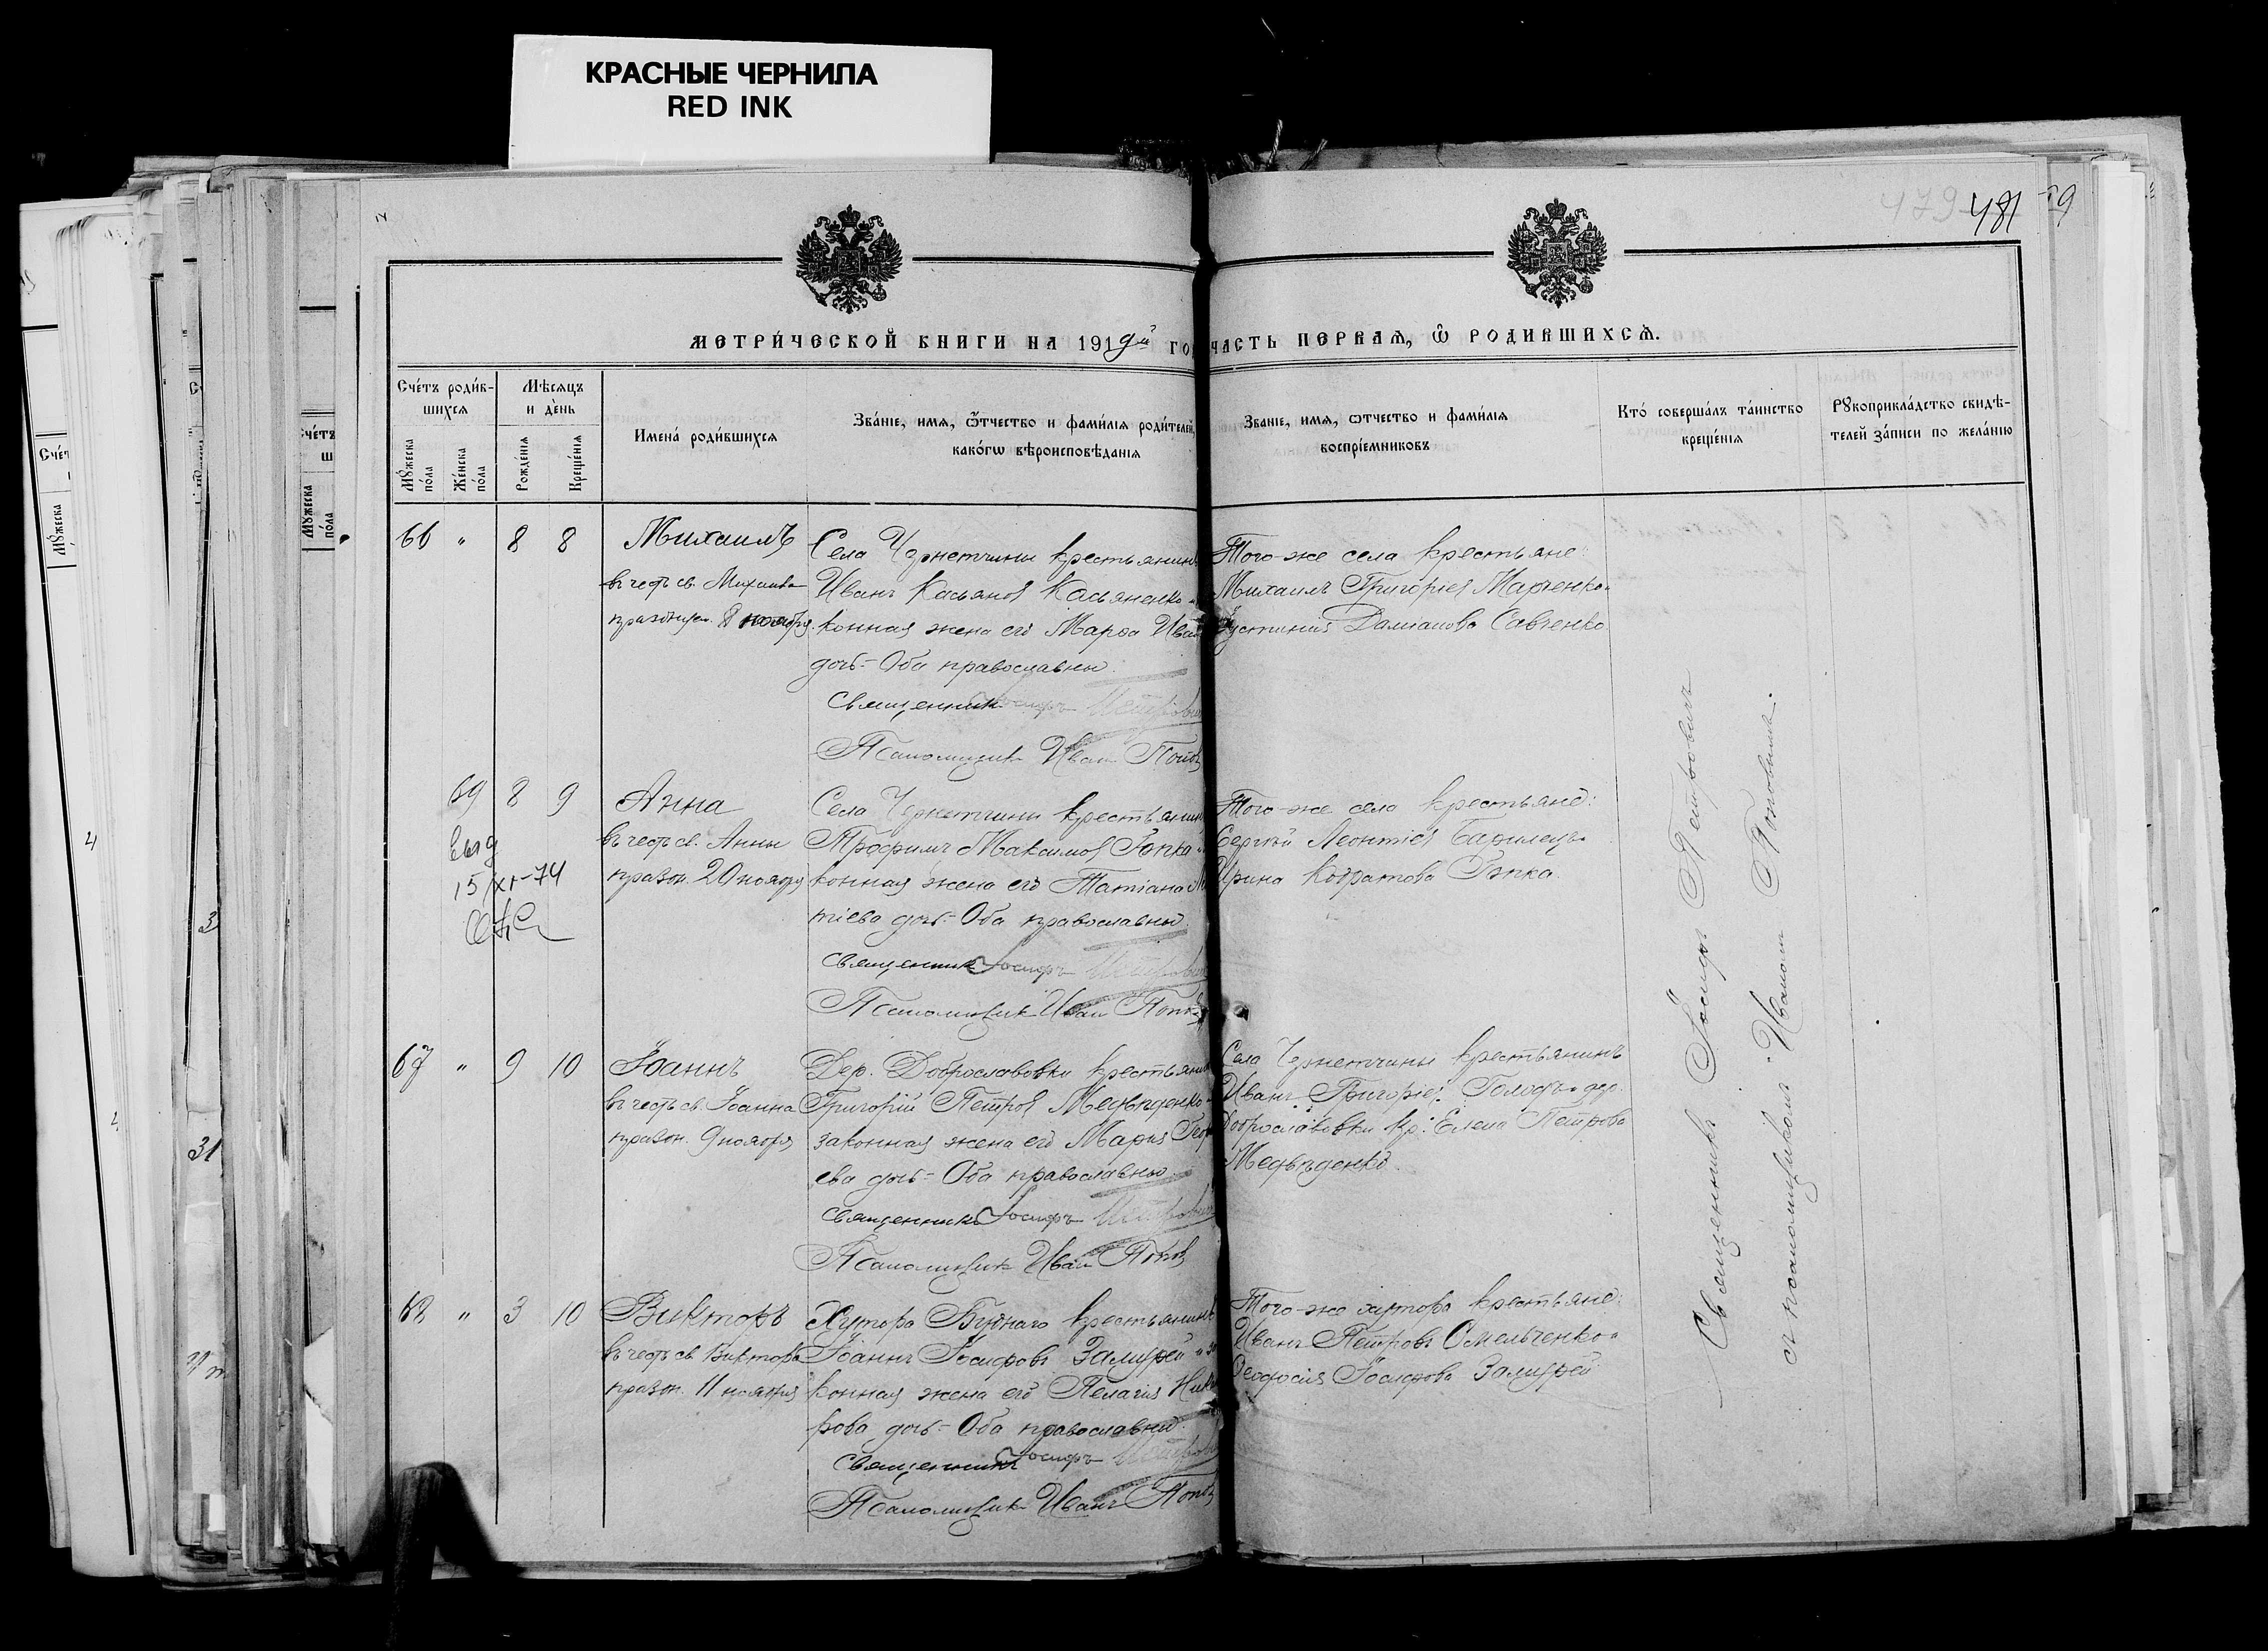 КРАСНЫЕ ЧЕРНИЛА
RED INK
479 481
МЕТРИ́ЧЕСКОЙ КНИГИ НА 1919й ГО
ЧАСТЬ ПЕРВАЯ, Ѡ РОДИВШИХСЯ.
Сче́тъ роди́в-
шихся
Мѣсяцъ
и де́нь
Мꙋжеска по́ла
Же́нска по́ла
Рожде́нія
Креще́нія
Имена́ роди́вшихся
Зва́ніе, имя, ѻ҆́тчество и фами́лія роди́телей,
како́гѡ вѣроисповѣ́данія
Званіе, имя, ѡтчество и фамі́лія
воспріемниковъ
Кто́ соверша́лъ та́инство
креще́нія
Рꙋкоприкла́дство свидѣ́-
телей за́писи по жела́нію
66 " 8 8 Михаилъ
въ честь св. Михаила
праздн. 8 ноября
Села Чернетчины крестьянин
Иванъ Касьянов Касьяненко и
конная жена его Марѳа Иван
дочь - Оба православны
Священник Іосифъ Петрович
Псаломщик Иван Попов
Того-же села крестьяне:
Михаилъ Григоріев Марченко и
Іустинія Даміанова Савченко
69 8 9 Анна
въ честь св. Анны
праздн. 20 ноября
выд
15/XI-74
Села Чернетчины крестьянин
Трофимъ Максимов Рѣпка
конная жена его Татіана
тіева дочь - Оба православны
Священник Іосифъ Петрович
Псаломщик Иван Попов
Того-же села крестьяне:
Сергѣй Леонтіев
Ирина Кодратова Рѣпка.
67 " 9 10 Іоаннъ
въ честь св. Іоанна
праздн. 9 ноября
Дер. Доброславовки крестьянин
Григорій Петров Медвѣденко и
законная жена его Марія Геор
ева дочь - Оба православны
Священникъ Іосифъ Петрович
Псаломщик Иван Попов
Села Чернетчины крестьянинъ
Иванъ Григоріев и дер.
Доброславовки кр. Елена Петрова
Медвѣденко.
68 " 3 10 Викторъ
въ честь св. Виктора
праздн. 11 ноября
Хутора Буднаго крестьянинъ
Іоаннъ Іосифовъ и за
конная жена его Пелагія Ники
рова дочь - Оба православны
Священникъ Іосифъ Петрович
Псаломщик Иванъ Попов
Того-же хутора крестьяне:
Иванъ Петровъ Омельченко и
Ѳеодосія Іосифова
Священникъ Іосифъ Петровичъ
съ псаломщикомъ Иваном Поповымъ.